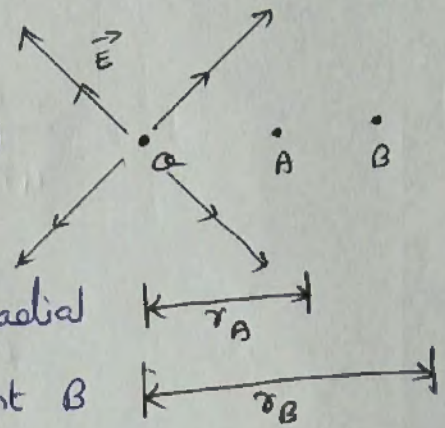 E
Q
A B
radial
r_A
at B
r_B